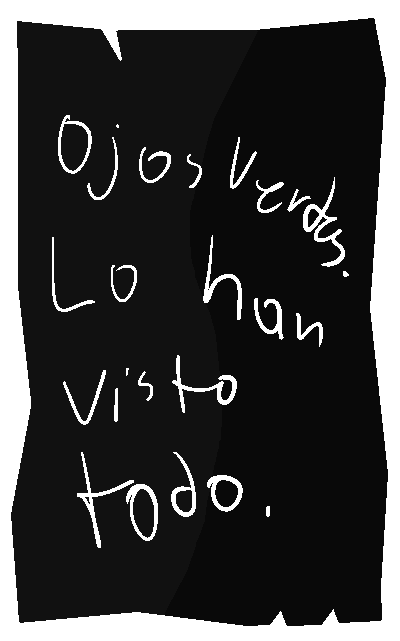 Ojos verdes.
Lo han
visto
todo.